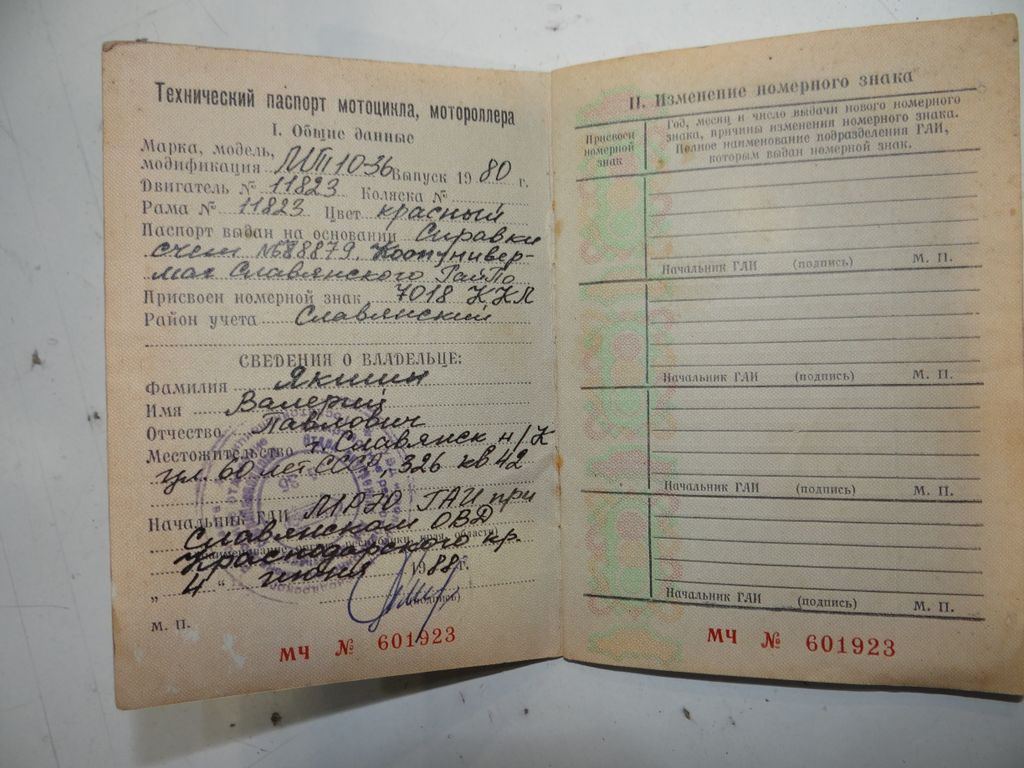 Технический паспорт мотоцикла, мотороллера
I. Общие данные
Марка, модель,
модификация ММТ1 0-36 Выпуск 19 80 г.
Двигатель № 11823 Коляска №
Рама № 11823 Цвет красный
Паспорт выдан на основании Справки
счет №688879. Коопунивер-
маг Славянского РайПо
Присвоен номерной знак 7018 ККЛ
Район учета Славянский
СВЕДЕНИЯ О ВЛАДЕЛЬЦЕ:
Фамилия Якшин
Имя Валерий
Отчество Павлович
Местожительство г. Славянск н/К
ул. 60 лет СССР, 326 кв. 42
Начальник ГАИ МРЭО ГАИ при
Славянском ОВД
Краснодарского кр.
„ 4 “ июня 1988 г.
(подпись)
М. П.
МЧ № 601923
II. Изменение номерного знака
Присвоен номерной знак
Год, месяц и число выдачи нового номерного
знака, причины изменения номерного знака.
Полное наименование подразделения ГАИ,
которым выдан номерной знак.
Начальник ГАИ (подпись) М. П.
Начальник ГАИ (подпись) М. П.
Начальник ГАИ (подпись) М. П.
Начальник ГАИ (подпись) М. П.
МЧ № 601923